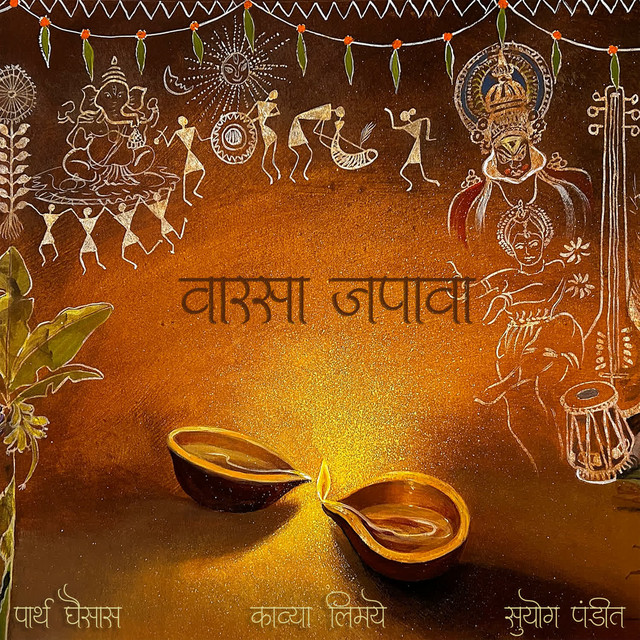 वारसा जपावा
पार्थ घैसास
काव्या लिमये
सुयोग पंडीत